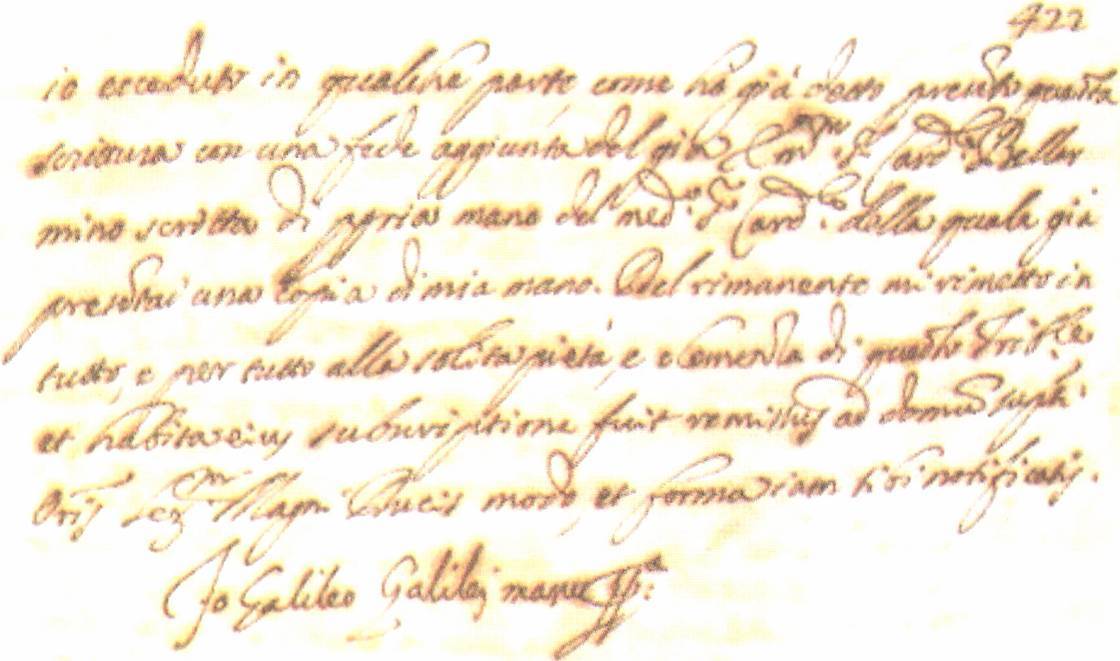 422
io ecceduto in qualche parte, come hò già detto presẽto questa
scrittura con una fede aggiunta del già Em.mo S.r Card.le Bellar
mino scritta di ppria mano del med.o S.r Card.le della quale già
presẽtai una copia di mia mano. Del rimanente mi rimetto in
tutto, e per tutto alla solita pietà, e clemẽza di questo Trib.le
et habita eius subscriptione fuit remissus ad domũ supti
Oris Ser.mi Magni Ducis modo, et forma iam sibi notificatis.
Io Galileo Galilej manu pp.a